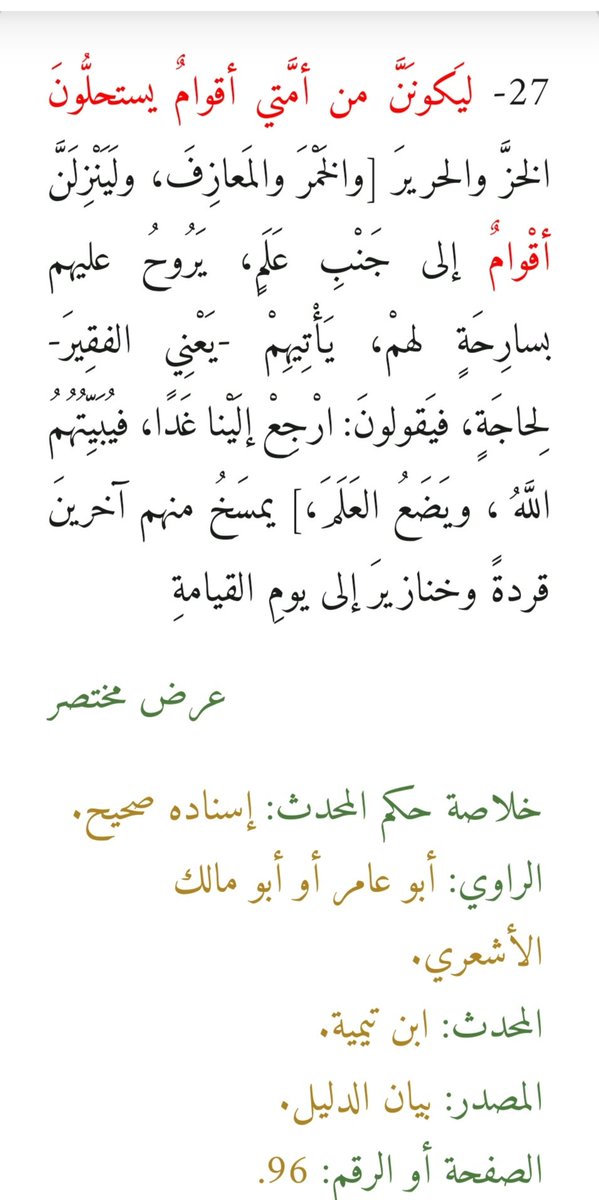 27- ليَكونَنَّ من أمَّتي أقوامٌ يستحلُّونَ
الخزَّ والحريرَ [والخَمْرَ والمَعازِفَ، ولَيَنْزِلَنَّ
أقْوامٌ إلى جَنْبِ عَلَمٍ، يَرُوحُ عليهم
بسارِحَةٍ لهمْ، يَأْتِيهِمْ -يَعْنِي الفقِيرَ-
لِحاجَةٍ، فيَقولونَ: ارْجِعْ إلَيْنا غَدًا، فيُبَيِّتُهُمُ
اللَّهُ ، ويَضَعُ العَلَمَ،] يمسَخُ منهم آخرينَ
قردةً وخنازيرَ إلى يومِ القيامةِ
عرض مختصر
خلاصة حكم المحدث: إسناده صحيح.
الراوي: أبو عامر أو أبو مالك
الأشعري.
المحدث: ابن تيمية.
المصدر: بيان الدليل.
الصفحة أو الرقم: 96.